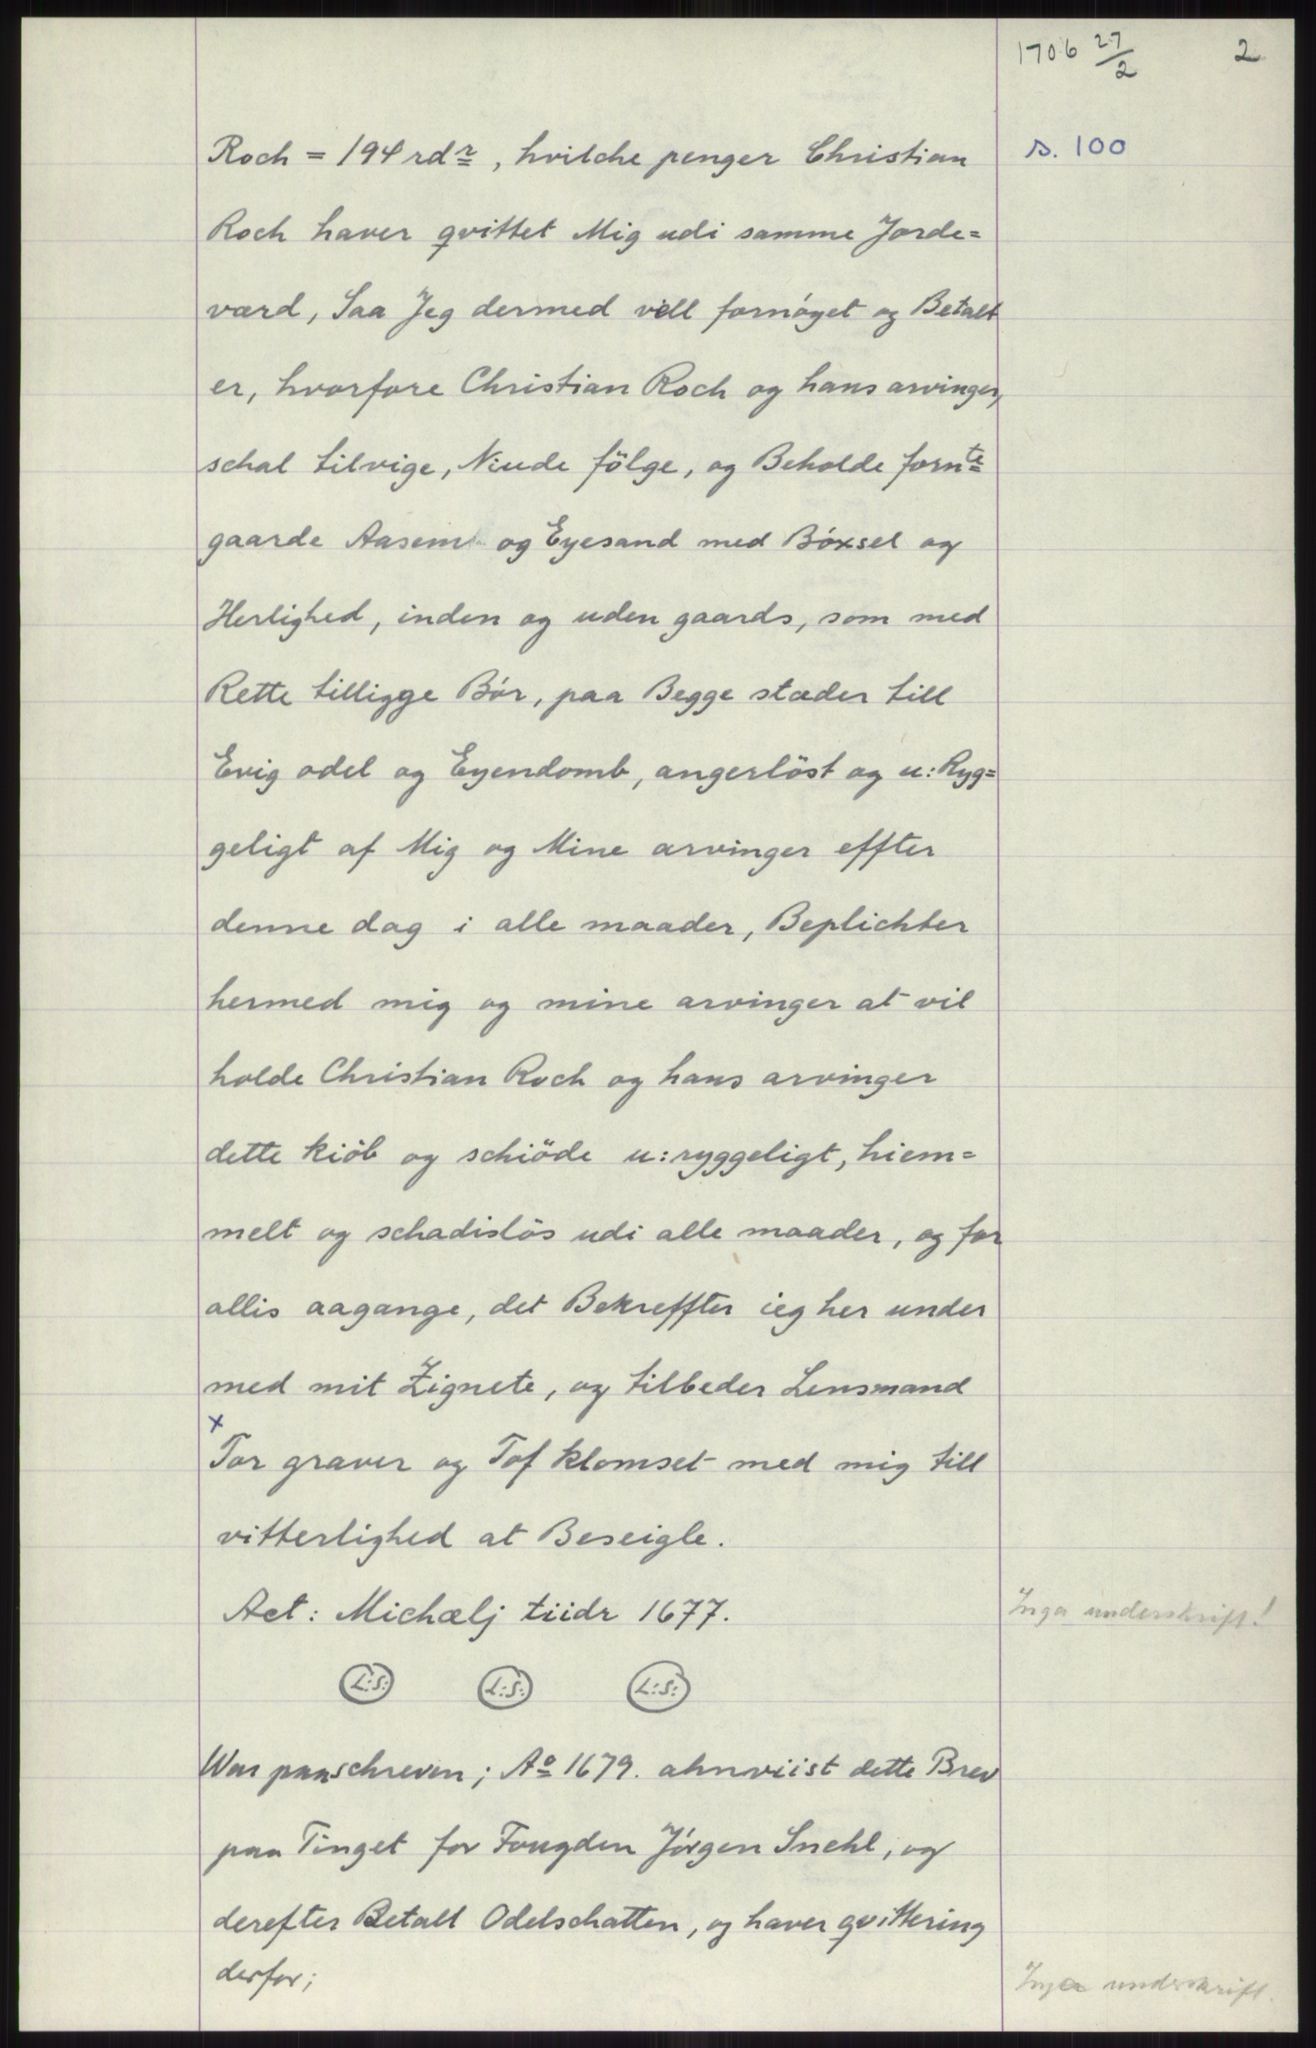 1706 27/2
2
Roch = 194 rdr, hvilche penger Christian
s. 100
Roch haver qvittet Mig udi samme Jorde=
værd, Saa Jeg dermed vell fornóyet og Betalt
er, hvorfore Christian Roch og hans arvinger,
schal tilvige, Niude fölge, og Beholde fornte
gaarde Aasem og Eyesand med Bóxsel og
Herlighed, inden og uden gaards, som med
Rette tilligge Bór, paa Begge stæder till
Evig odel og Eyendomb, angerlöst og u: Ryg=
geligt af Mig og Mine arvinger effter
denne dag i alle maader, Beplichter
hermed mig og mine arvinger at vil
holde Christian Roch og hans arvinger
dette kiöb og schiöde u: ryggeligt, hiem=
melt og schadislös udi alle maader, og for
allis aagange, det Bekreffter ieg her under
med mit Zignete, og tilbeder Lensmand
x
Tor graver og Tof klomset med mig till
vitterlighed at Beseigle.
Act: Michælj tiidr 1677.
Inga underskrift!
L:S: L:S: L:S:
War paaschreven; Ao 1679. ahnviist dette Brev
paa Tinget for Fougden Jórgen Snehl, og
derefter Betalt Odelschatten, og haver qvittering
derfor;
Inga underskrift.